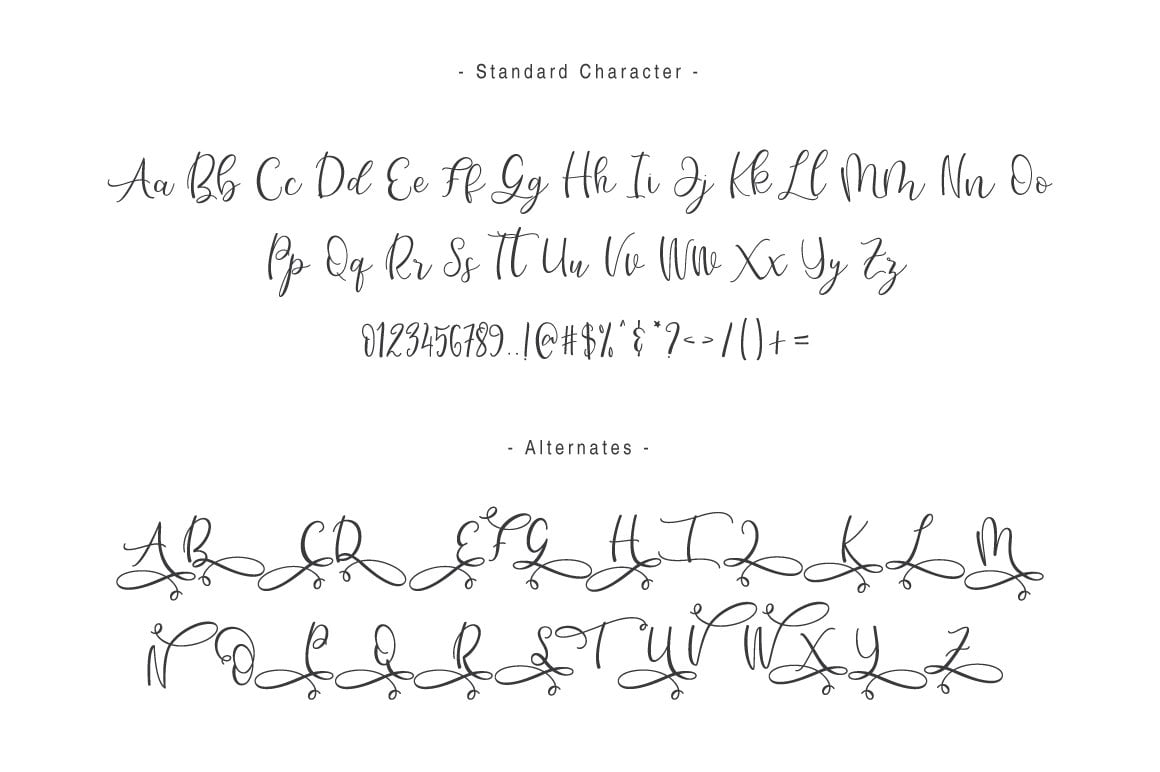 - Standard Character -
Aa Bb Cc Dd Ee Ff Gg Hh Ii Jj Kk Ll Mm Nn Oo
Pp Qq Rr Ss Tt Uu Vv Ww Xx Yy Zz
0123456789..!@#$%^&*?<>/()+=
- Alternates -
A B C D E F G H I J K L M
N O P Q R S T U V W X Y Z